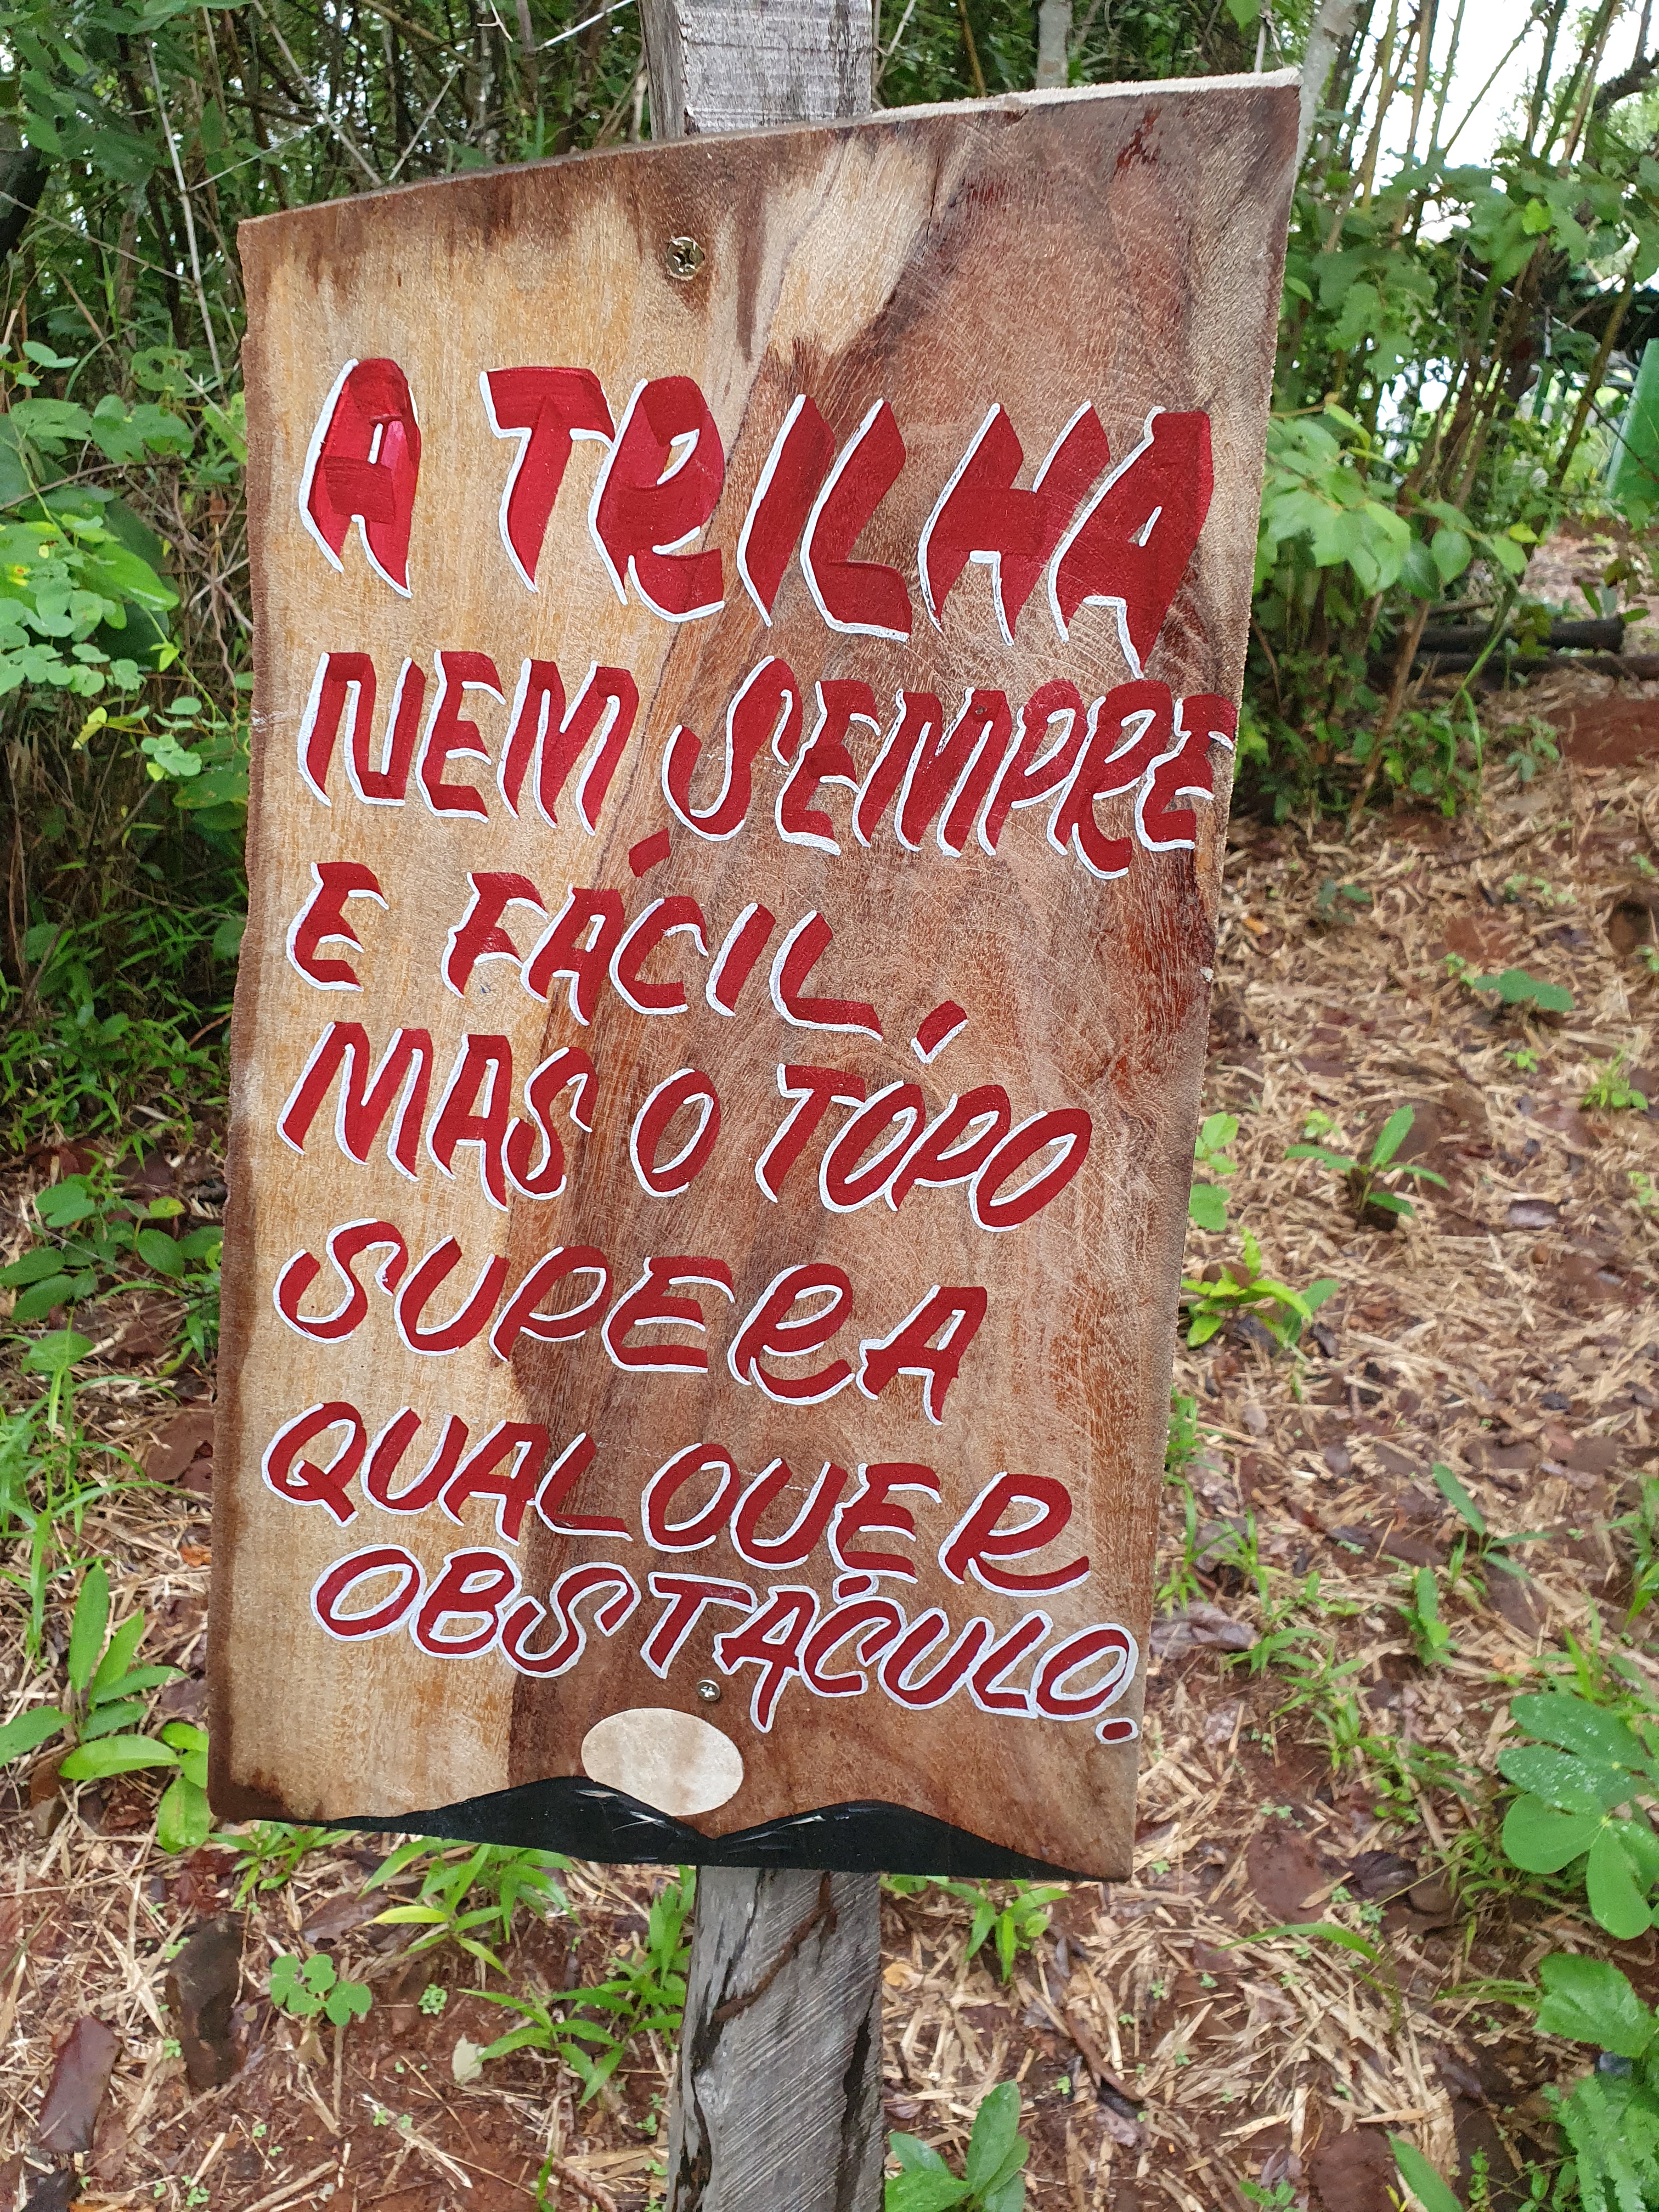 A TRILHA
NEM SEMPRE
E FÁCIL,
MAS O TOPO
SUPERA
QUALQUER
OBSTÁCULO.